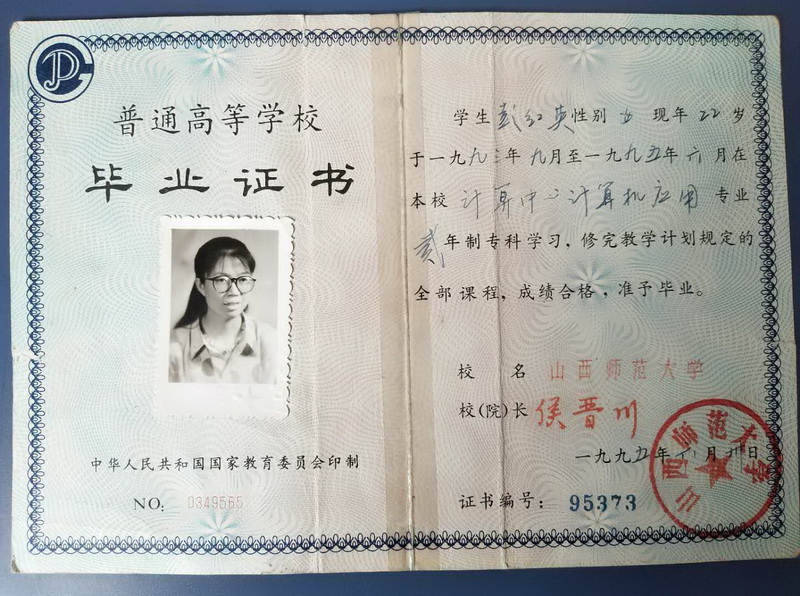 普通高等学校
毕业证书
中华人民共和国国家教育委员会印制
NO: 0349565
学生彭红英性别女现年22岁
于一九九三年九月至一九九五年六月在
本校计算中心计算机应用专业
贰年制专科学习，修完教学计划规定的
全部课程，成绩合格，准予毕业。
校名 山西师范大学
校(院)长 侯晋川
一九九五年六月 日
证书编号：95373
山西师范大学